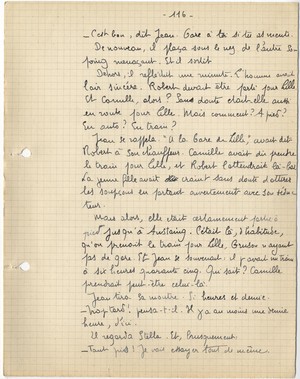 - 116 -
_ C'est bon, dit Jean. Gare à toi si tu as menti.
De nouveau, il plaça sous le nez de l'autre son
poing menaçant. Et il sortit.
Dehors, il réfléchit une minute. L'homme avait
l'air sincère. Robert devait être parti pour Lille.
Et Camille, alors ? Sans doute était-elle aussi
en route pour Lille. Mais comment ? A pied ?
En auto ? En train ?
Jean se rappela "A la Gare de Lille", avait dit
Robert à son chauffeur. Camille avait dû prendre
le train pour Lille, et Robert l'attendrait là-bas.
La jeune fille avait craint sans doute d'attirer
les soupçons en partant ouvertement avec son séduc-
teur.
Mais alors, elle était certainement partie à
pied jusqu'à . C'était là, d'habitude,
qu'on prenait le train pour Lille, n'ayant
pas de gare. Et Jean se souvenait. Il y avait un train
à six heures quarante cinq. Qui sait ? Camille
prendrait peut-être celui-là.
Jean tira sa montre. 5 heures et demie.
_ trop tard ! pensa-t-il. Il y a au moins une demie
heure, d'ici.
Il regarda Stella. Et, brusquement :
_ Tant pis ! Je vais essayer tout de même.